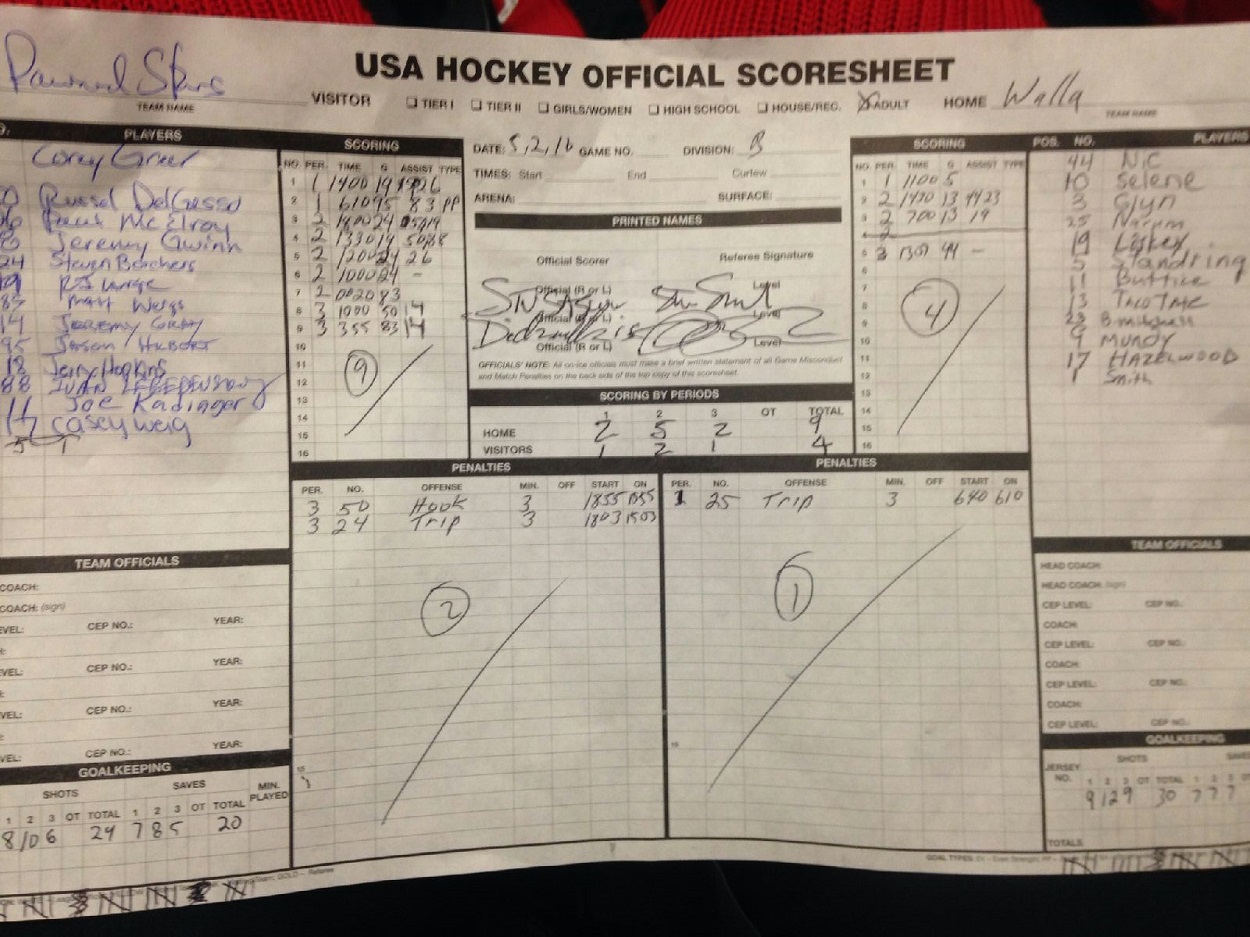 USA HOCKEY OFFICIAL SCORESHEET
TEAM NAME
VISITOR
TIER I
TIER II
GIRLS/WOMEN
HIGH SCHOOL
HOUSE/REC.
ADULT
HOME Walla
TEAM NAME
PLAYERS
Corey Greer
Russel DelGrosso
McElroy
Jeremy Gwinn
24 Steven Borchers
Matt Weigs
14 Jeremy
95 Jason Hubert
18 Jerry Hopkins
88 IVAN
11 Joe Kadinger
17 Casey Weig
SCORING
NO. PER. TIME G ASSIST TYPE
1 1 1400 19 26
2 1 610 95 83 PP
3 2 1800 24
4 2 1330 19
5 2 1200 24 26
6 2 1000 24 -
7 2 83
8 3 1000 50 14
9 3 355 83 14
10
11
12
13
14
15
16
9
DATE: 5,2,16 GAME NO. DIVISION: B
TIMES: Start End Curfew
ARENA: SURFACE:
PRINTED NAMES
Official Scorer Referee Signature
Official (R or L) Level
Official (R or L) Level
Official (R or L) Level
OFFICIALS' NOTE: All on-ice officials must make a brief written statement of all Game Misconduct
and Match Penalties on the back side of the top copy of this scoresheet.
SCORING BY PERIODS
1 2 3 OT TOTAL
HOME 2 5 2 9
VISITORS 1 2 1 4
SCORING
NO. PER. TIME G ASSIST TYPE
1 1 1100 5
2 2 1430 13 44 23
3 2 700 13 19
4
5 3 1300 44 -
6
7
8
9
10
11
12
13
14
15
16
4
POS. NO. PLAYERS
44 Nic
10 Selene
3 Glyn
25
19 Laskey
5 Standring
11 Buttice
13
23
9 MUNDY
17 HAZELWOOD
1 Smith
PENALTIES
PER. NO. OFFENSE MIN. OFF START ON
3 50 Hook 3 1855 1555
3 24 Trip 3 1803 1503
2
PENALTIES
PER. NO. OFFENSE MIN. OFF START ON
1 25 Trip 3 640 610
1
TEAM OFFICIALS
COACH:
COACH: (sign)
CEP NO.: YEAR:
CEP NO.: YEAR:
CEP NO.: YEAR:
CEP NO.: YEAR:
GOALKEEPING
SHOTS SAVES MIN. PLAYED
1 2 3 OT TOTAL 1 2 3 OT TOTAL
8 10 6 24 7 8 5 20
TEAM OFFICIALS
HEAD COACH:
HEAD COACH: (sign)
CEP LEVEL: CEP NO.:
COACH:
CEP LEVEL: CEP NO.:
COACH:
CEP LEVEL: CEP NO.:
COACH:
CEP LEVEL: CEP NO.:
GOALKEEPING
JERSEY NO. SHOTS
1 2 3 OT TOTAL 1 2 3
9 12 9 30 7 7 7
TOTALS